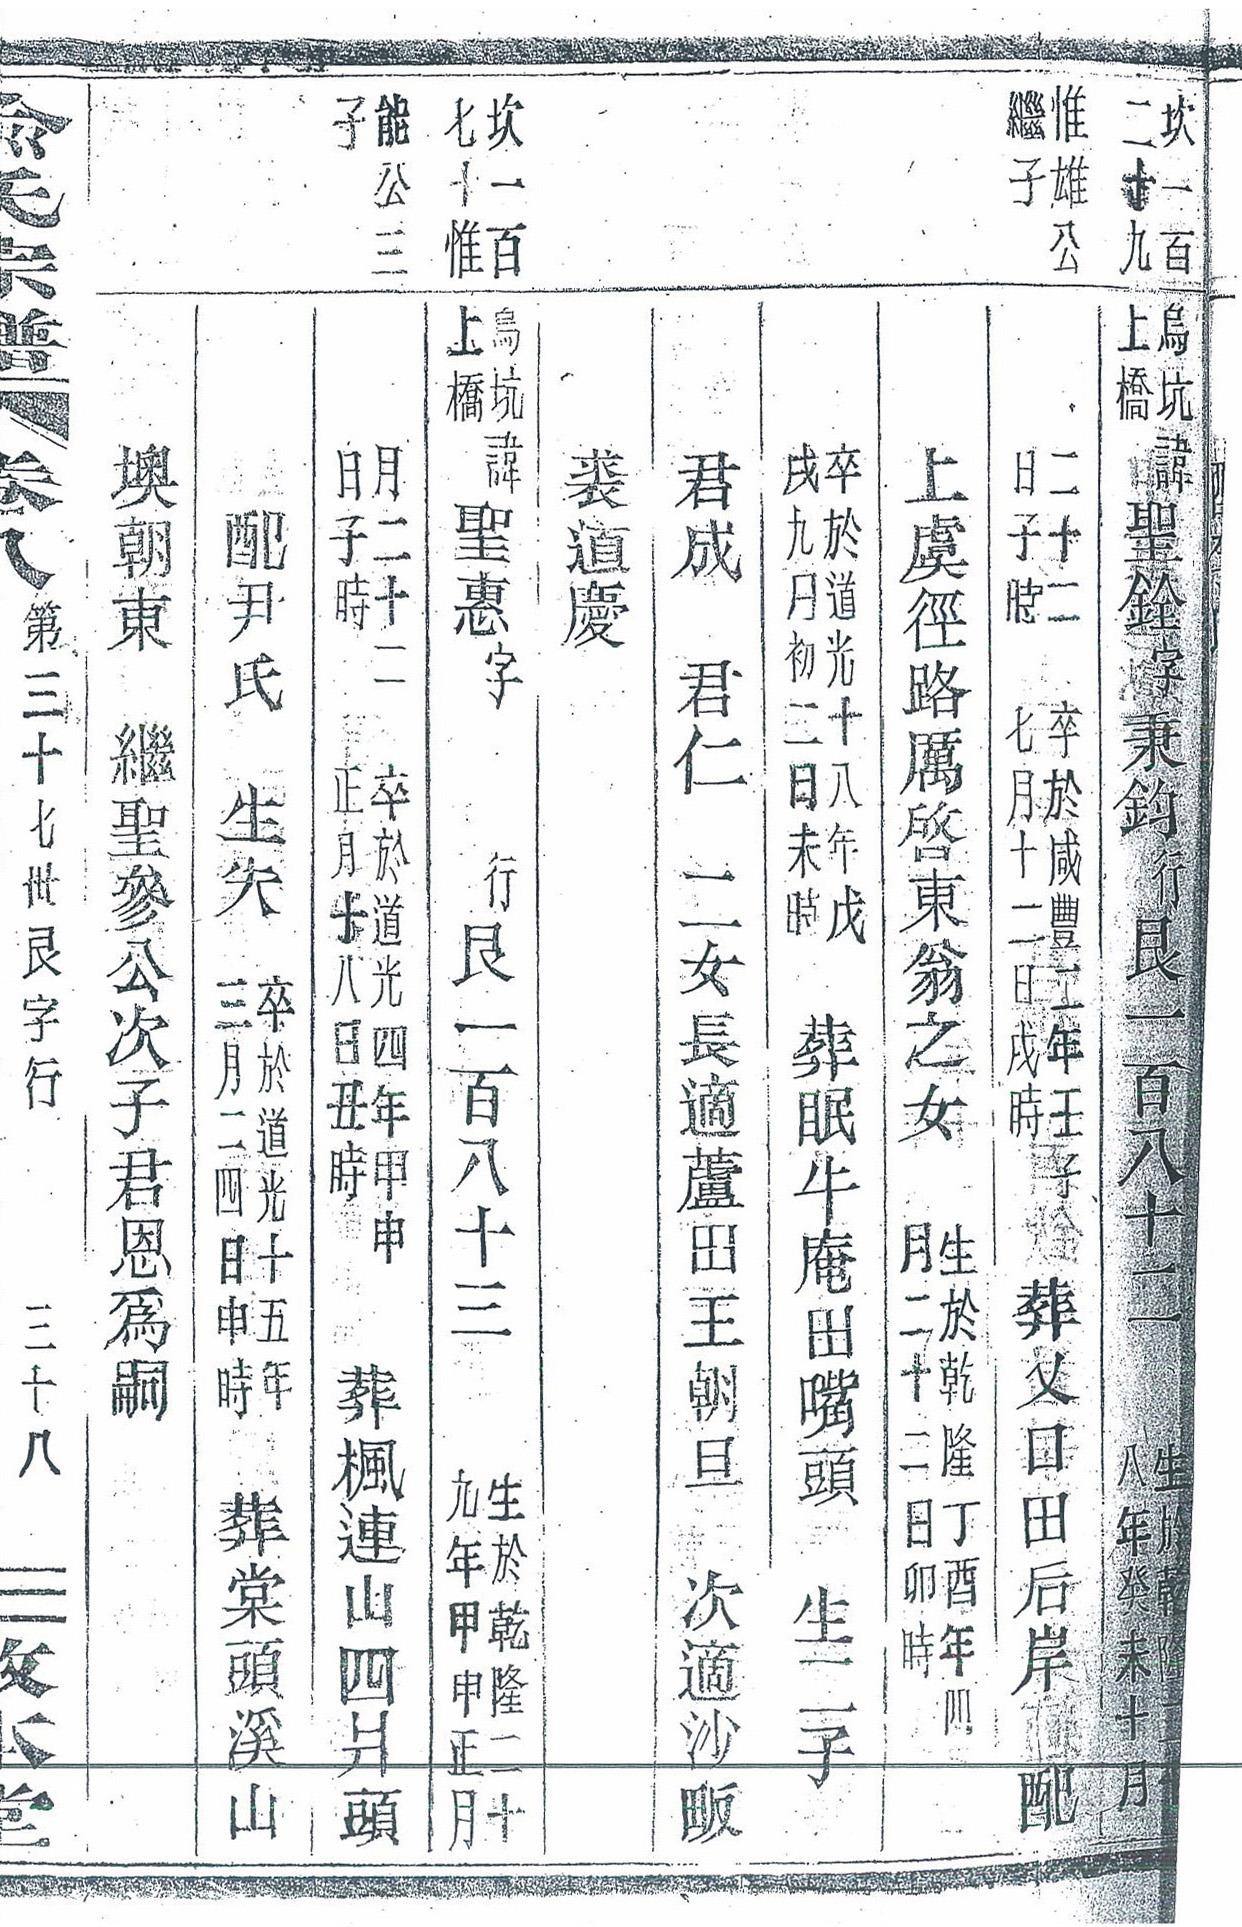 坎一百
二十九
惟雄公
繼子
烏坑
上橋
諱聖銓字秉鈞行艮一百八十二
生於乾隆二十
八年癸未十月
二十二
日子時
卒於咸豐二年壬子
七月十二日戌時
葬父口田后岸 配
上虞徑路厲啓東翁之女
生於乾隆丁酉年四
月二十二日卯時
卒於道光十八年戊
戌九月初二日未時
葬眠牛庵田嘴頭 生二子
君成 君仁 二女長適蘆田王朝旦 次適沙畈
裘道慶
坎一百
七十惟
能公三
子
烏坑
上橋
諱聖惠字 行艮一百八十三
生於乾隆二十
九年甲申正月
月二十二
日子時
卒於道光四年甲申
正月十八日丑時
葬楓連山四爿頭
配尹氏 生失
卒於道光十五年
三月二四日申時
葬棠頭溪山
墺朝東 繼聖參公次子君恩爲嗣
俞氏宗譜 卷八 第三十七世艮字行 三十八 敦本堂